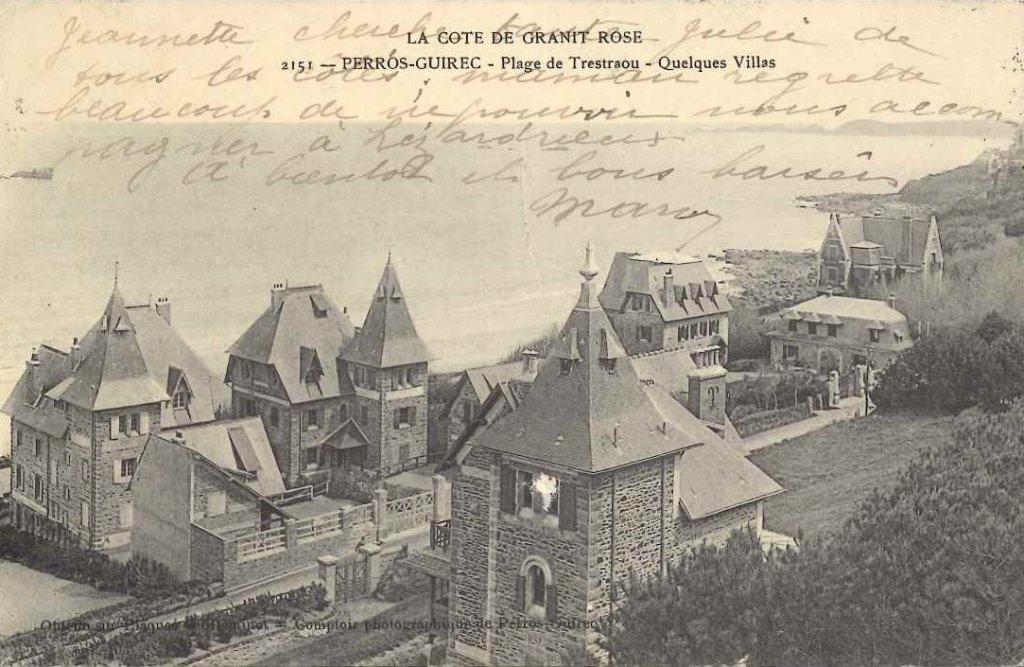 LA COTE DE GRANIT ROSE
2151 — PERROS-GUIREC - Plage de Trestraou - Quelques Villas
Jeannette cherche tante Julie de
tous les cotés maman regrette
beaucoup de ne pouvoir nous accom
pagner à Lézardrieux
A bientot et bons baisers
Obtenu sur Plaques Guilleminot — Comptoir photographique de Perros-Guirec